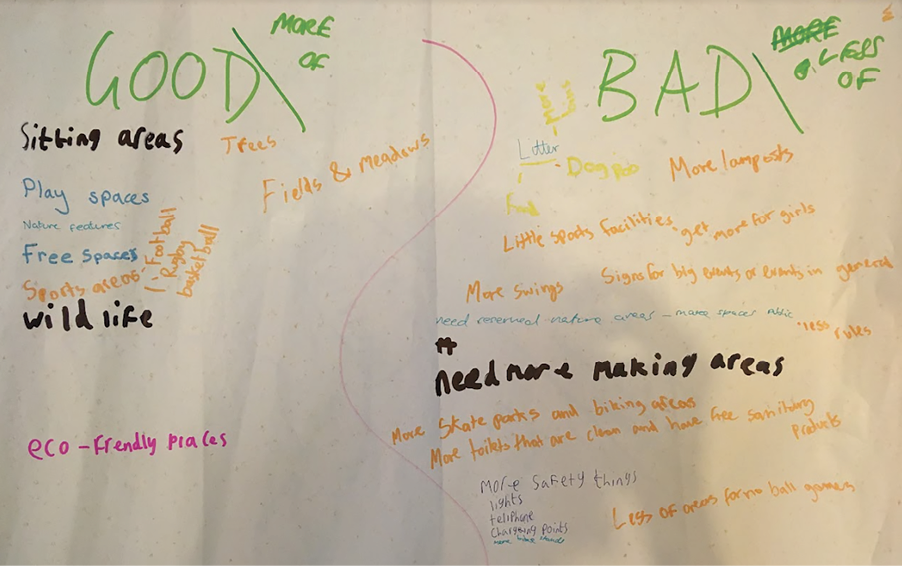 GOOD
MORE
OF
Sitting areas
Trees
Fields & meadows
Play spaces
Nature features
Free spaces
Sports areas - Football
Rugby
basketball
wildlife
eco-frendly places
BAD
MORE
LESS
OF
More
Litter
Dog poo
More lamposts
Little sports facilities, get more for girls
More swings
Signs for big events or events in general
need reserved nature areas - make spaces
less rules
need more making areas
More skate parks and biking areas
More toilets that are clean and have free sanitary
products
More safety things
lights
teliphone
Chargging points
Less of areas for no ball games